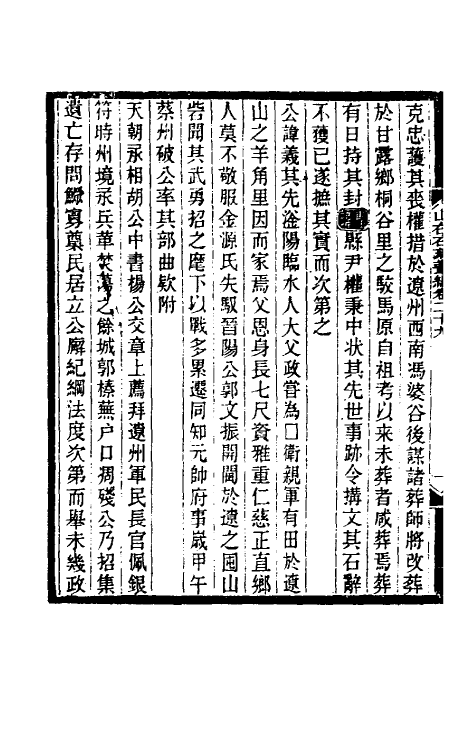 克忠護其喪權措於遼州西南馮婆谷後謀諸葬師將改葬
於甘露鄉桐谷里之駮馬原自祖考以來未葬者咸葬焉葬
有日持其封縣尹權秉中狀其先世事跡令撰文其石辭
不獲已遂摭其實而次第之
公諱義其先滏陽臨水人大父政嘗為□衛親軍有田於遼
山之羊角里因而家焉父恩身長七尺資雅重仁慈正直鄉
人莫不敬服金源氏失馭晉陽公郭文振開閫於遼之圁山
砦聞其武勇招之麾下以戰多累遷同知元帥府事嵗甲午
蔡州破公率其部曲欵附
天朝承相胡公中書楊公交章上薦拜遼州軍民長官佩銀
符時州境承兵革焚蕩之餘城郭榛蕪户口凋殘公乃招集
遺亡存問鰥寡奠民居立公廨紀綱法度次第而舉未幾政
山右石刻叢編卷二十九